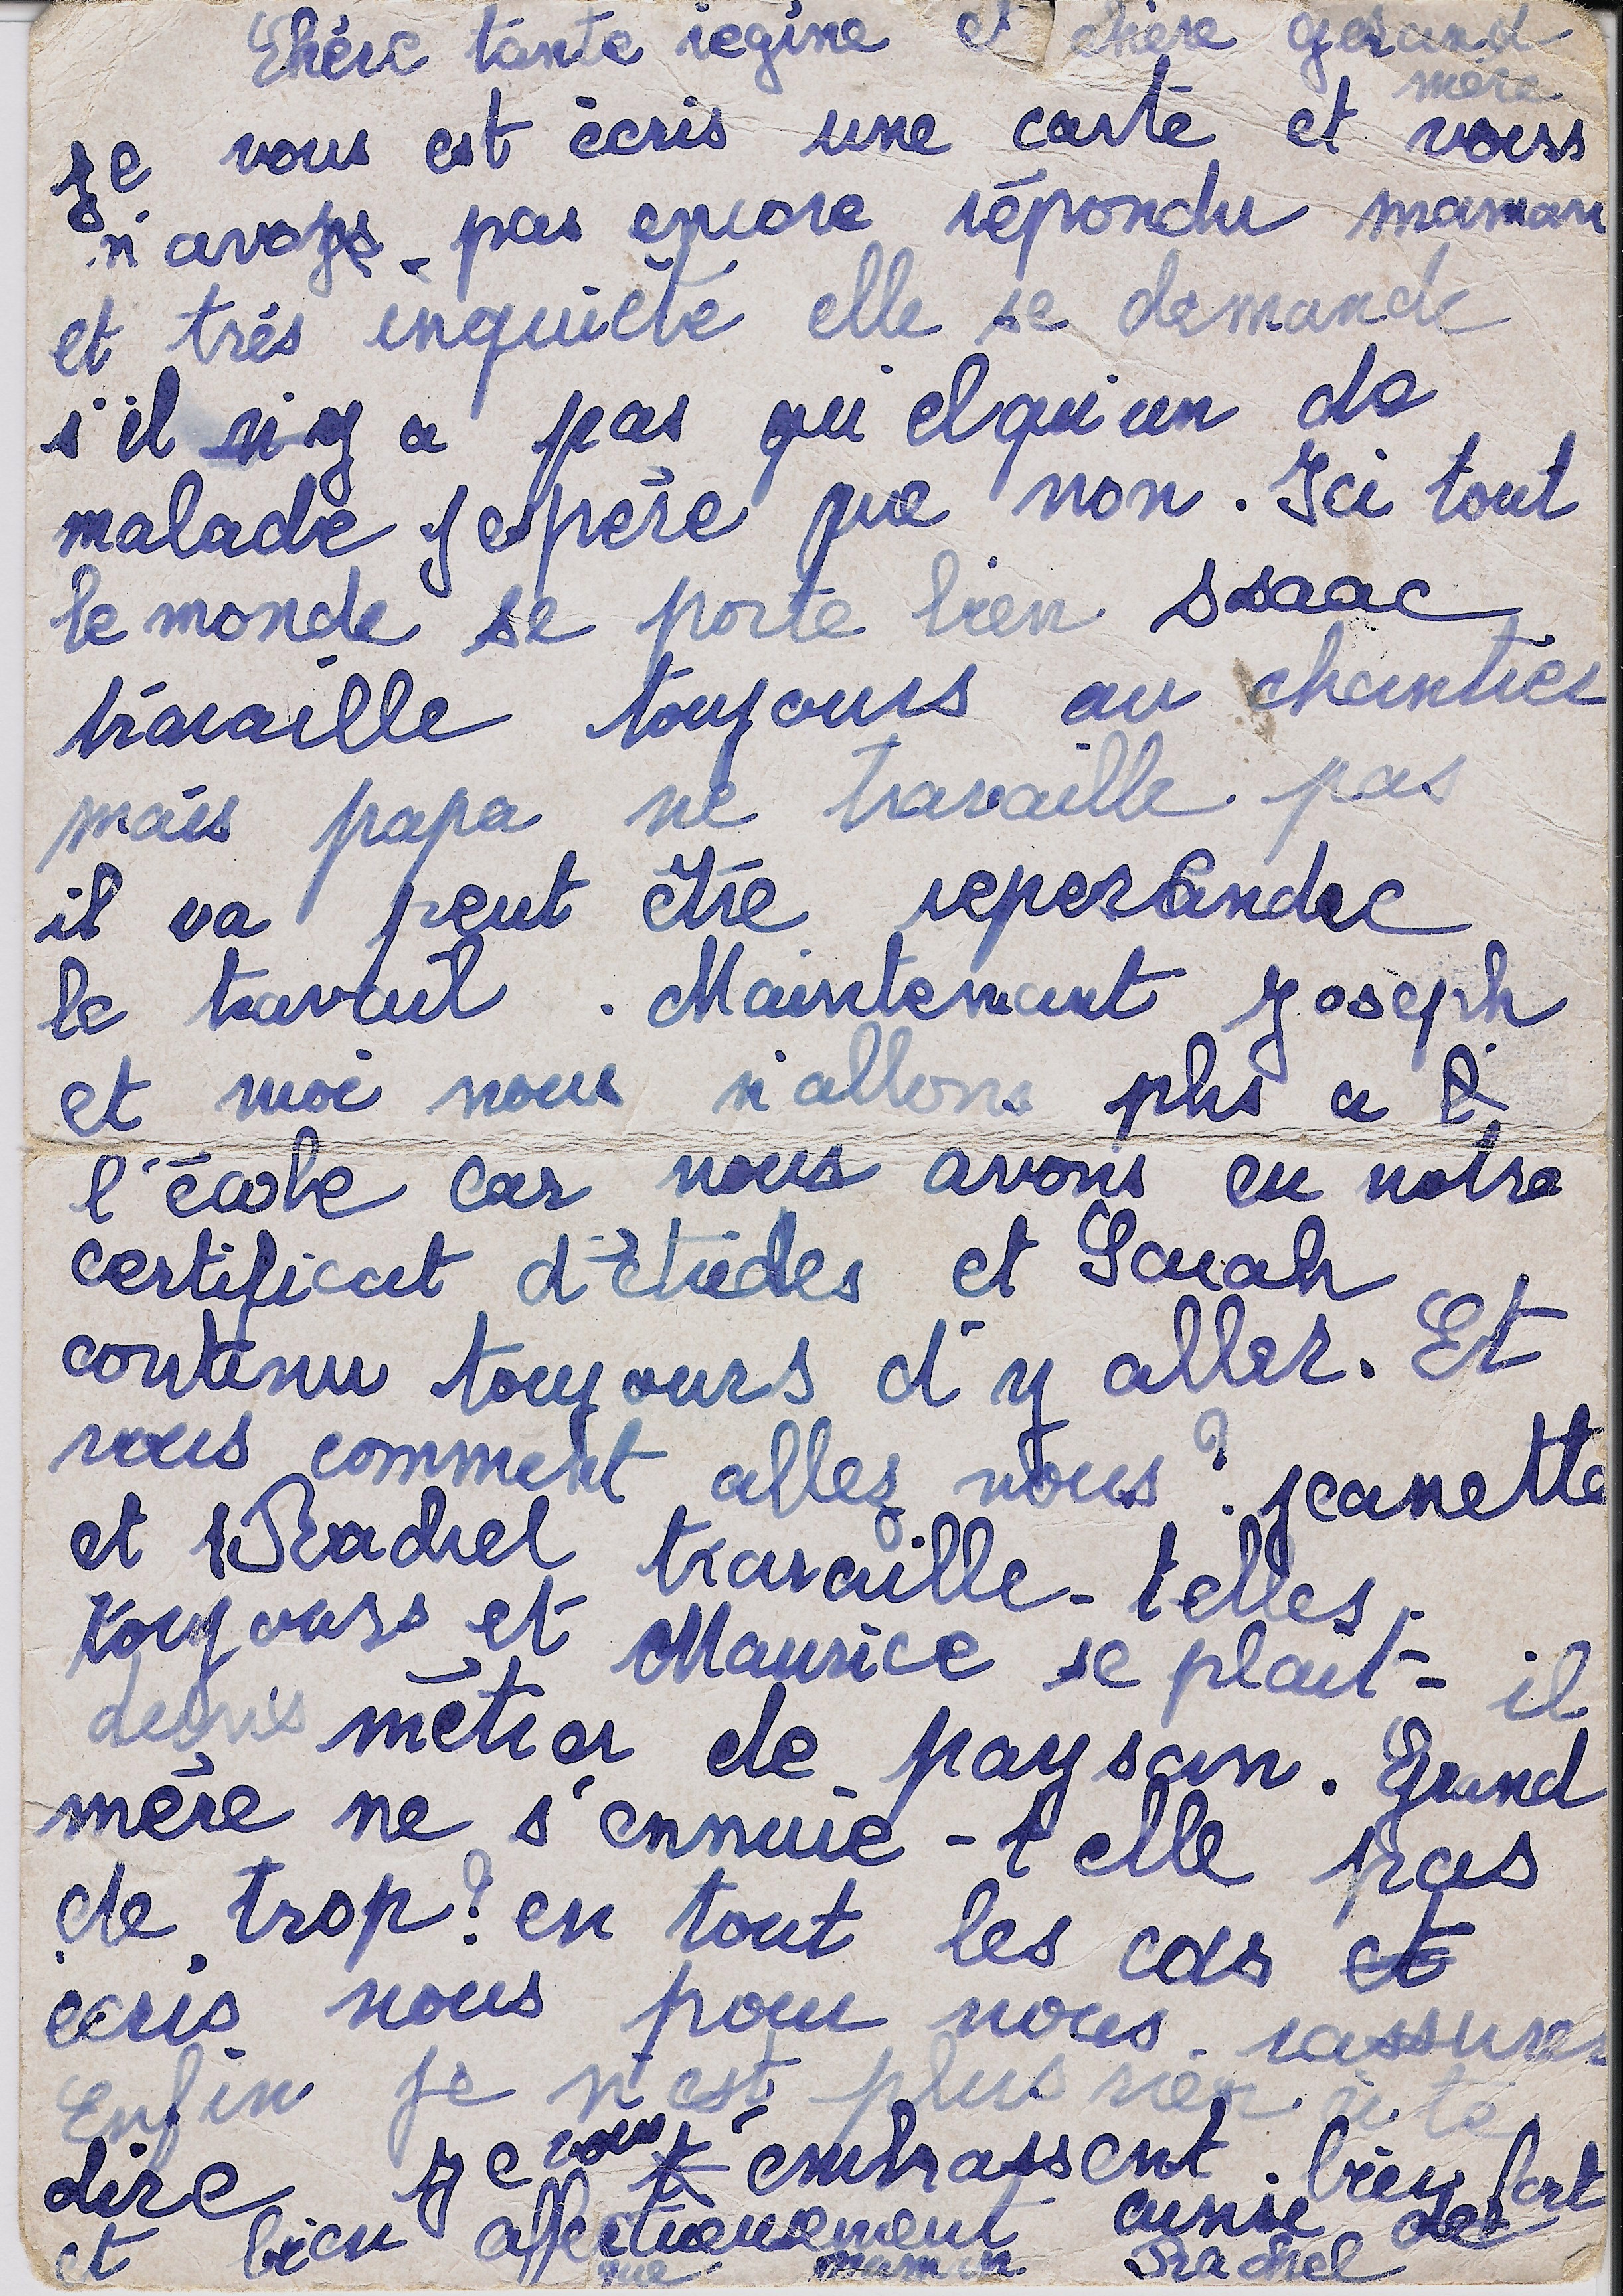 Chère tante regine et chère gerand
mère
je vous est écris une carte et vous
n'avons pas encore répondu maman
et très inquiète elle se demande
s'il n'y a pas qu'elqu'un de
malade j'espère que non. Ici tout
le monde se porte bien Isaac
travaille toujours au chantier
mais papa ne travaille pas
il va peut être reperandre
le travail. Maintenant Joseph
et moi nous n'allons plus a
l'école car nous avons eu notre
certificat d'études et Sarah
contenu toujours d'y aller. Et
vous comment allez vous? jeanette
et Rachel travaille-t elles
toujours et Maurice se plait-il
métier de paysan. Grand
mère ne s'ennuie-t elle pas
de trop? en tout les cas et
ecris nous pour nous rassurer
Enfin je n'est plus rien à te
dire je vous t'embrassent bien fort
et bien affectueusement ainsie
que maman Rachel